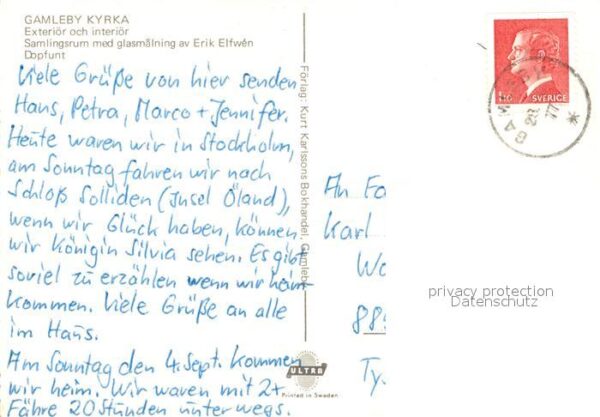 GAMLEBY KYRKA
Exteriör och interiör
Samlingsrum med glasmålning av Erik Elfwén
Dopfunt
Viele Grüße von hier senden
Hans, Petra, Marco + Jennifer.
Heute waren wir in Stockholm,
am Sonntag fahren wir nach
Schloß Solliden (Insel Öland),
wenn wir Glück haben, können
wir Königin Silvia sehen. Es gibt
soviel zu erzählen wenn wir heim
kommen. Viele Grüße an alle
im Haus.
Am Sonntag den 4. Sept. kommen
wir heim. Wir waren mit 2+
Fähre 20 Stunden unterwegs.
Förlag: Kurt Karlssons Bokhandel, Gamleby
ULTRA
Printed in Sweden
SVERIGE
An Fa
Karl
We
privacy protection
Datenschutz
Ty.